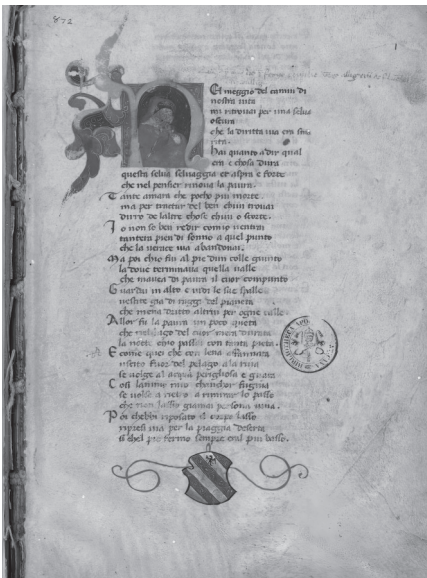 872
1
El meggio del camin di
nostra uita
mi ritrouai per una selua
oscura
che la diritta uia era smar
rita.
Hai quanto a dir qual
era e chosa dura
questa selua seluaggia et aspra e forte
che nel pensier rinoua la paura.
Tante amara che pocho piu morte.
ma per tractar del ben chiui trouai
diro de laltre chose chiui o scorte.
Io non so ben redir comio uentrai
tantera pien di sonno a quel punto
che la uerace uia abandonai.
Ma poi chio fui al pie dun colle giunto
la doue terminaua quella ualle
che mauea di paura il cuor compunto
Guardai in alto e uidi le sue spalle
uestite gia di raggi del pianeta
che mena dritto altrui per ogne calle
Allor fu la paura un poco queta
che nel lago del cuor mera durata
la nocte chio passai con tanta pieta.
E come quei che con lena affannata
uscito fuor del pelago a la riua
se uolge al acqua perigliosa e guata
Cosi lanimo mio chancor fuggiua
se uolse a retro a rimirar lo passo
che non lascio giamai persona uiua.
Poi chebbi riposato il corpo lasso
ripresi uia per la piaggia deserta
si chel pie fermo sempre era l piu basso.